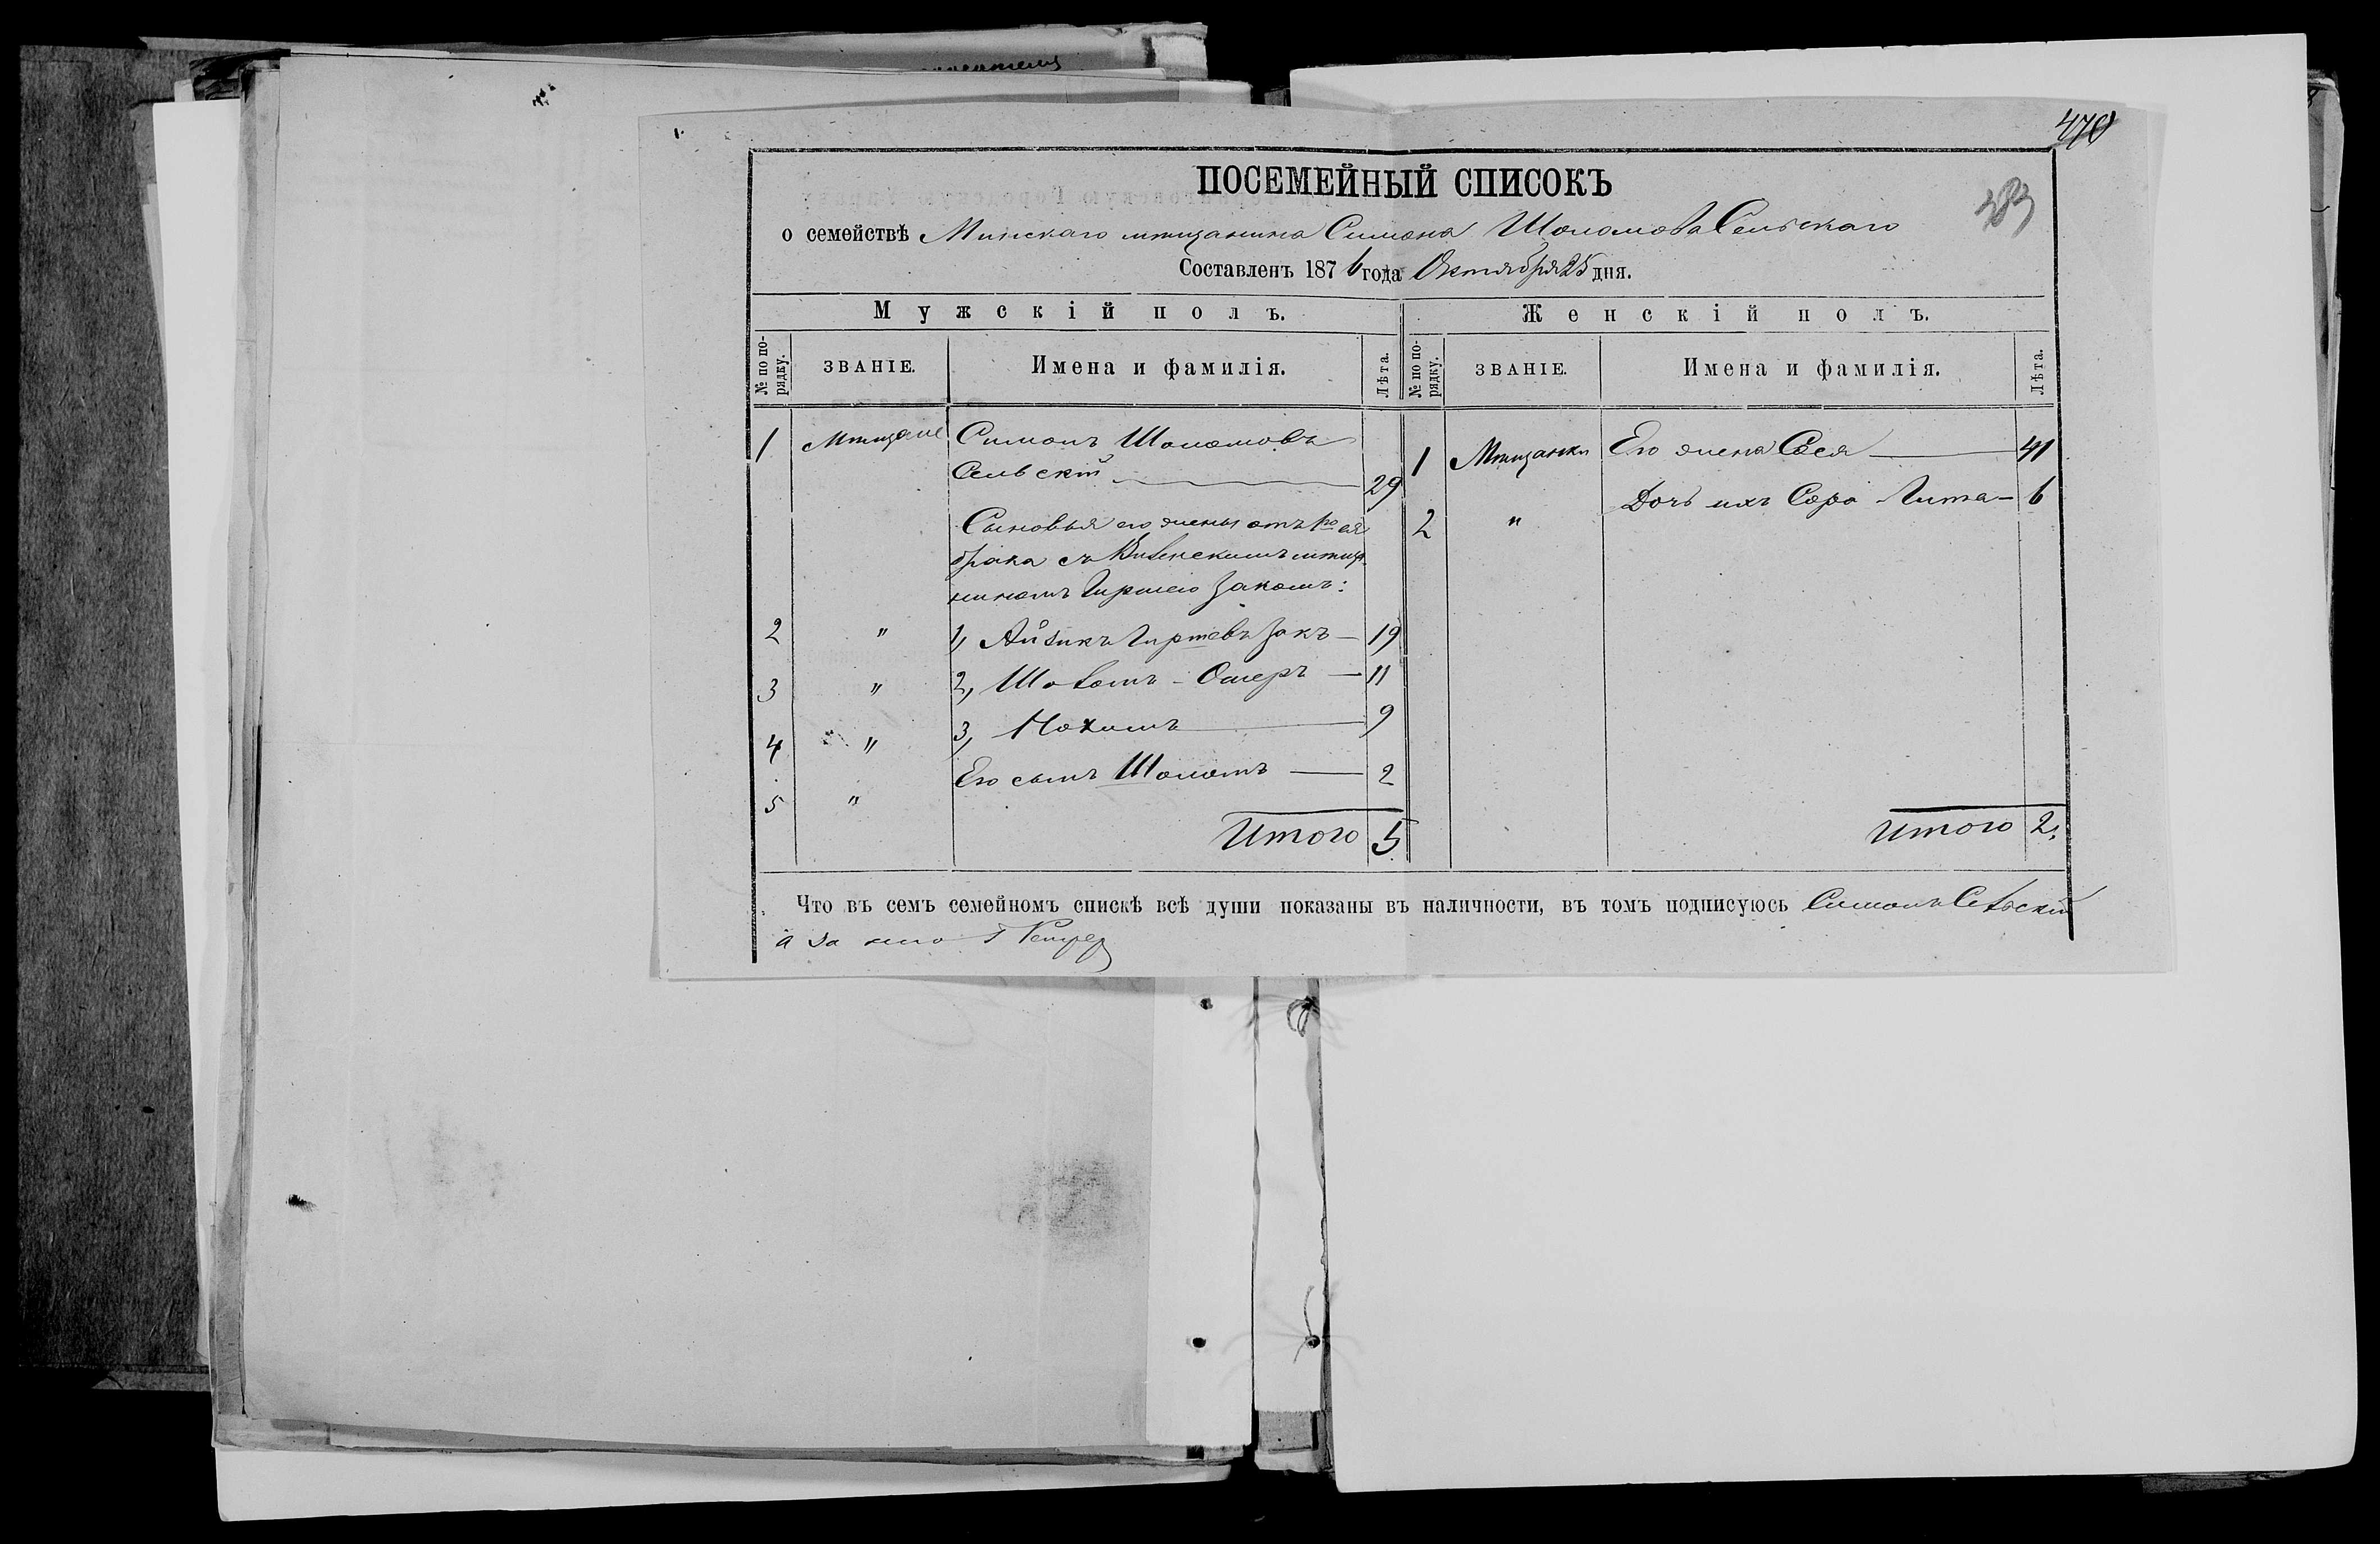 470
383
ПОСЕМЕЙНЫЙ СПИСОКЪ
о семействѣ Минскаго мѣщанина Симона Шоломова Сельскаго
Составленъ 1876 года Октября 25 дня.
Мужскій полъ. Женскій полъ.
№ по порядку. ЗВАНІЕ. Имена и фамилія. Лѣта. № по порядку. ЗВАНІЕ. Имена и фамилія. Лѣта.
1 Мѣщане Симонъ Шоломовъ
Сельскій 29
Сыновья его жены отъ 1го ея
брака съ Виленскимъ мѣща
ниномъ Гиршею Закомъ:
2 " 1, Айзикъ Гиршевъ Закъ — 19
3 " 2, Шоломъ - Ошеръ — 11
4 " 3, Нохимъ 9
5 " Его сынъ Шоломъ — 2
Итого 5
1 Мѣщанки Его жена Сося 41
2 " Дочь ихъ Сора Гита — 6
Итого 2.
Что въ семъ семейномъ спискѣ всѣ души показаны въ наличности, въ томъ подписуюсь Симонъ Сельскій
а за него